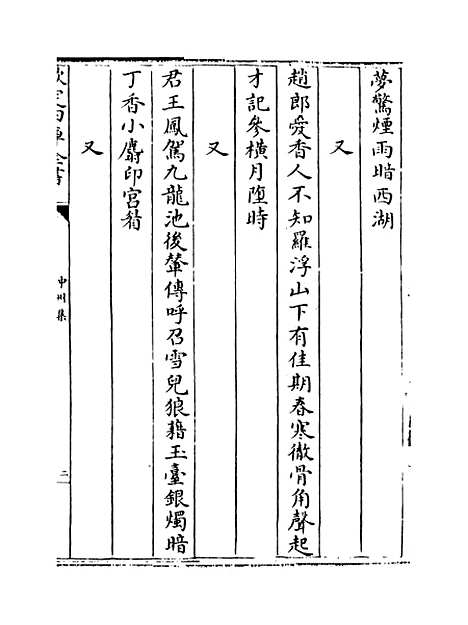 夢驚煙雨暗西湖
又
趙郎愛香人不知羅浮山下有佳期春寒徹骨角聲起
才記參橫月墮時
又
君王鳳駕九龍池後輦傳呼召雪兒狼藉玉臺銀燭暗
丁香小麝印宮眉
又
中州集
二